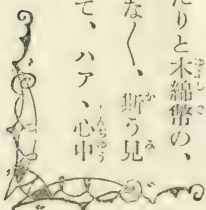 たりと木綿幣の、
な〱、斯う見
て、ハア、心中